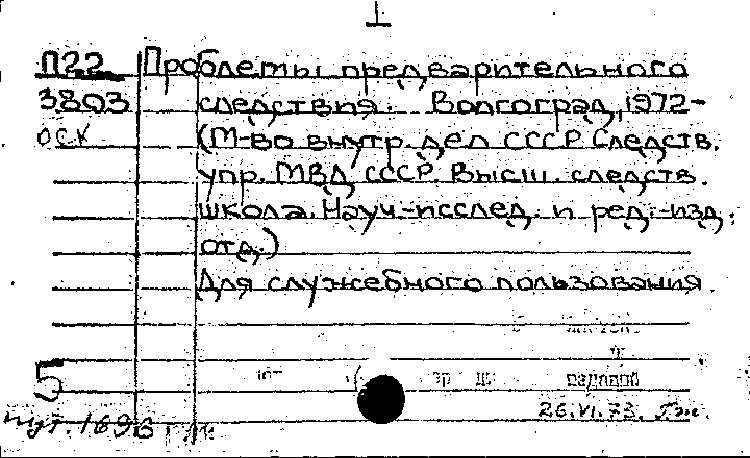 1
П22 Проблемы предварительного
3803 следствия. Волгоград, 1972-
ОСК (М-во внутр. дел СССР Следств.
упр. МВД СССР. Высш. следств.
школа. Науч.-исслед. и ред.-изд.
отд.)
Для служебного пользования.
5
26.VI.73.